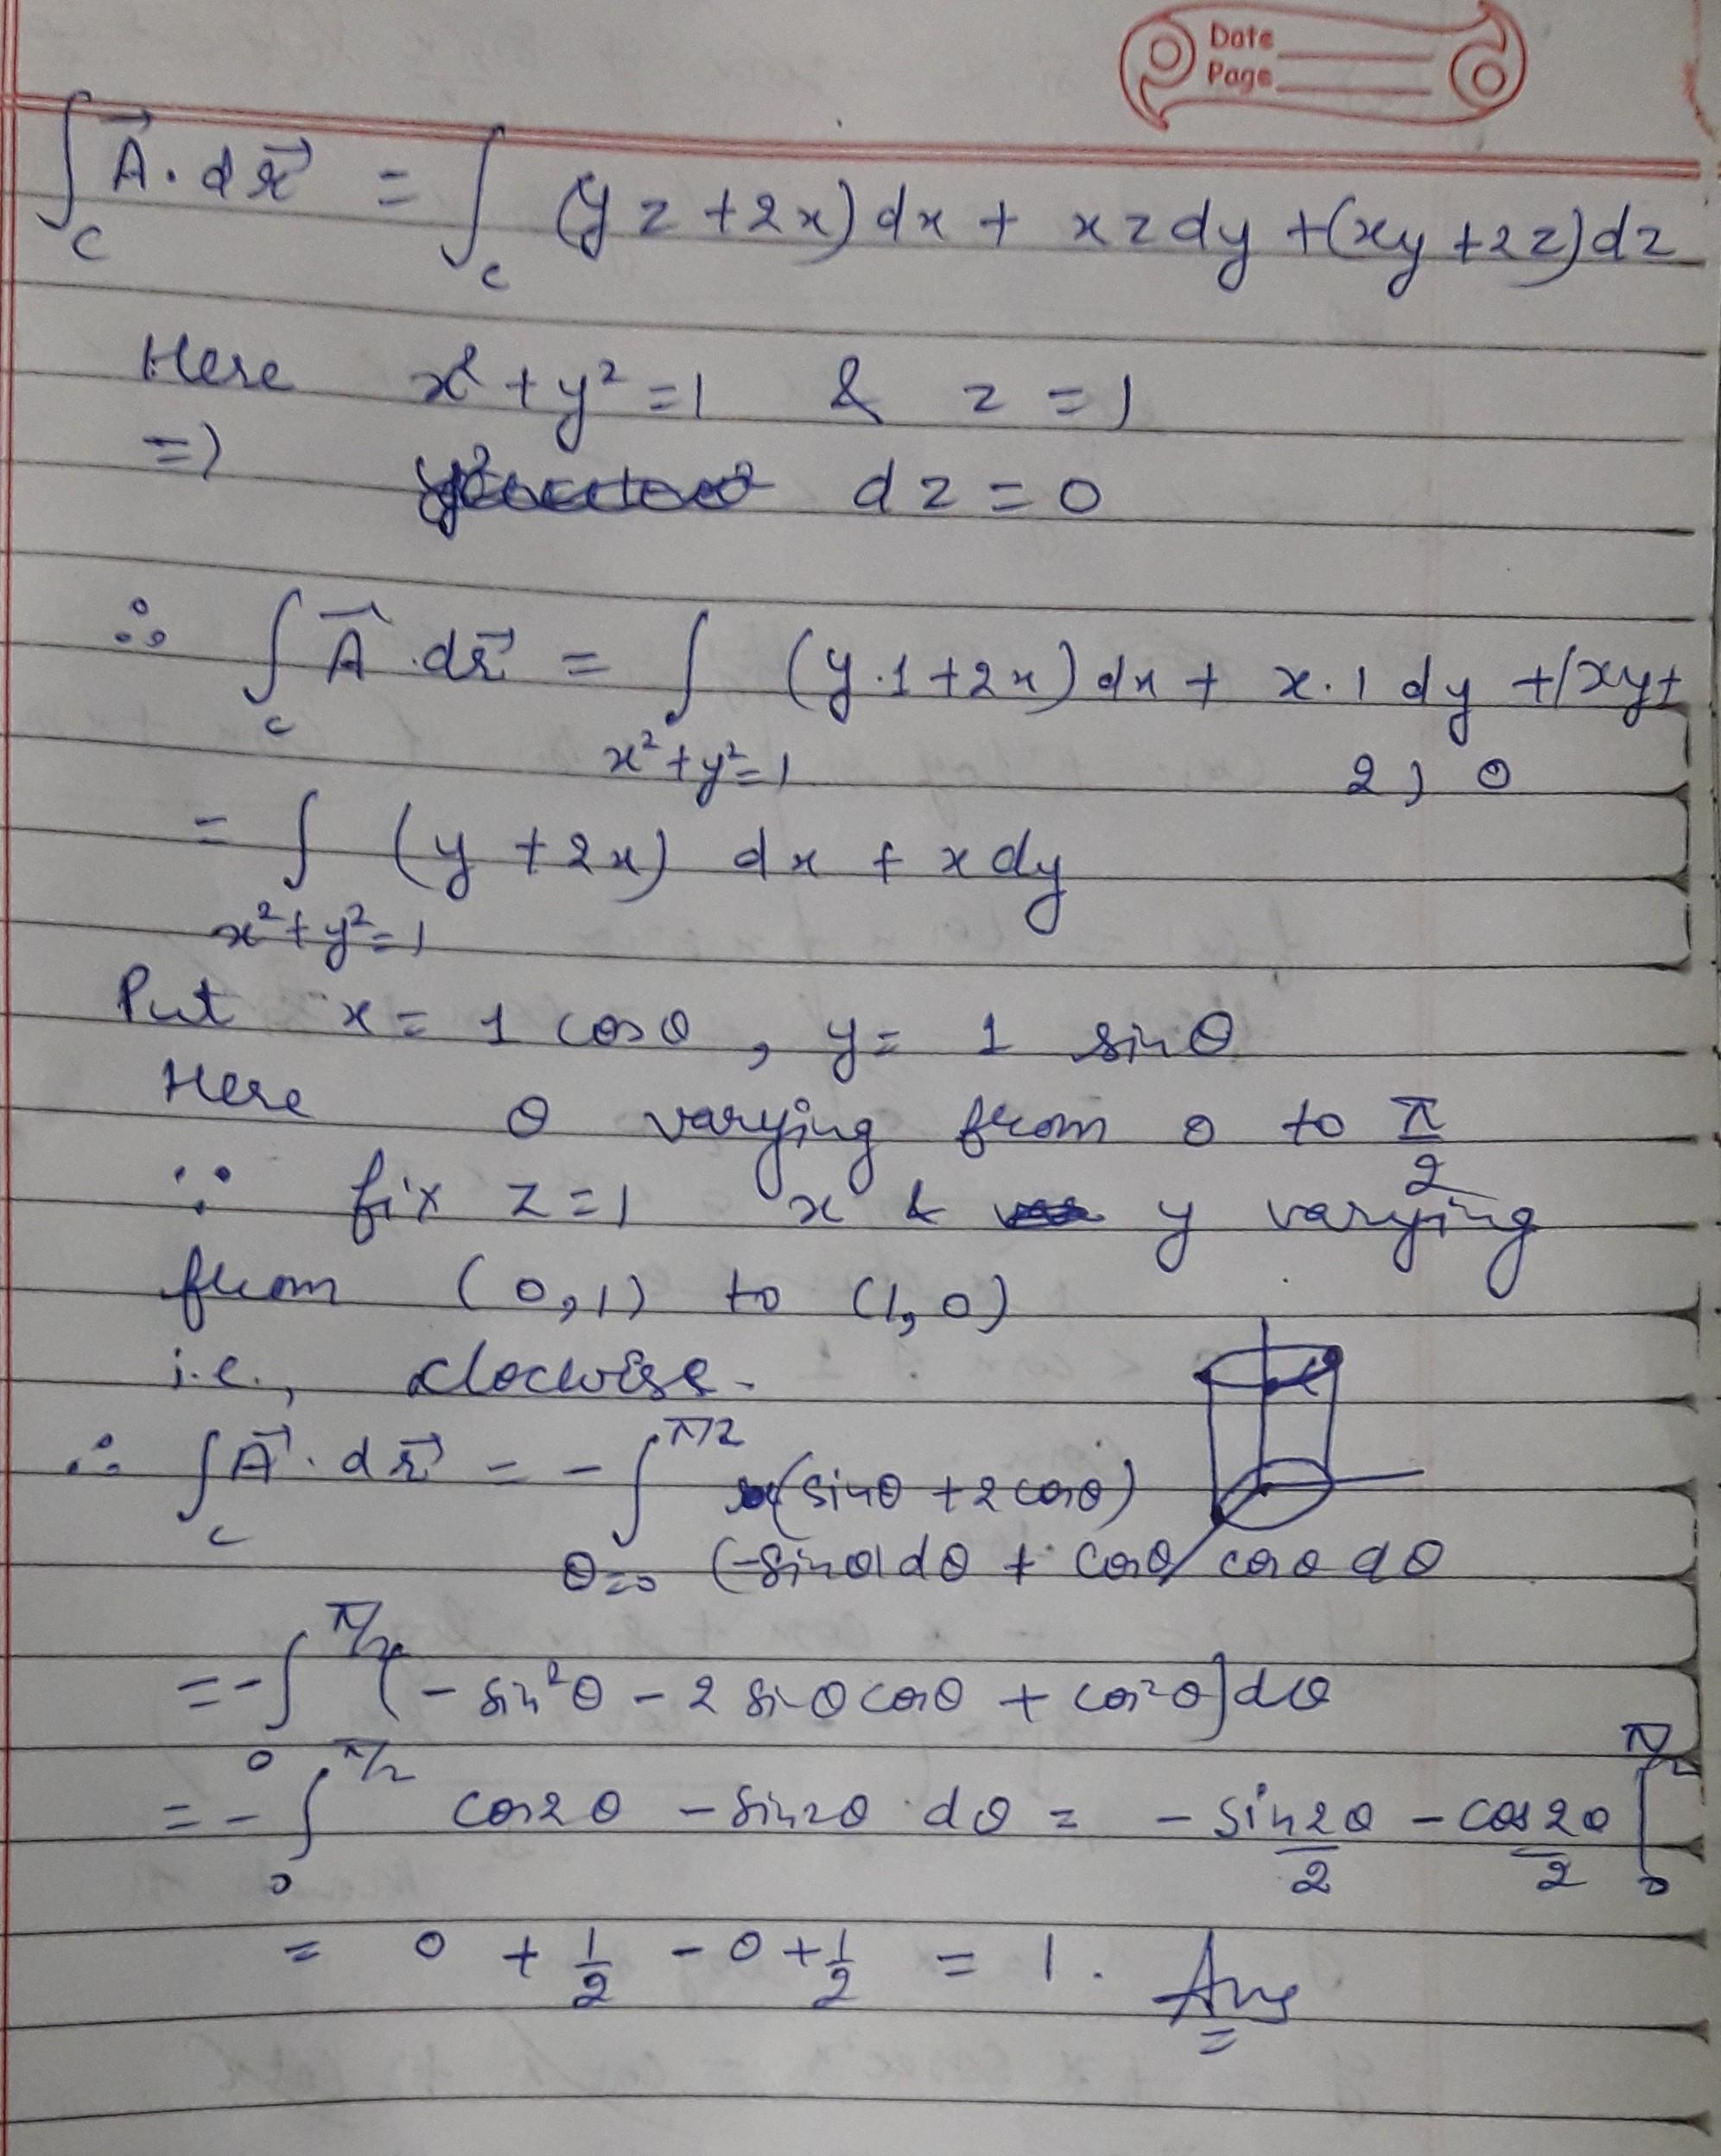 Date
Page
∫_C A⃗ · dr⃗ = ∫_C (yz + 2x) dx + xz dy + (xy + 2z) dz
Here x² + y² = 1 & z = 1
⇒ dz = 0
∴ ∫_C A⃗ · dr⃗ = ∫_{x²+y²=1} (y·1 + 2x) dx + x·1 dy + (xy +
2) 0
= ∫_{x²+y²=1} (y + 2x) dx + x dy
Put x = 1 cosθ , y = 1 sinθ
Here θ varying from 0 to π/2
∵ fix z = 1 x & y varying
from (0,1) to (1,0)
i.e., clockwise.
∴ ∫_C A⃗ · dr⃗ = - ∫_{θ=0}^{π/2} (sinθ + 2cosθ)
(-sinθ) dθ + cosθ cosθ dθ
= - ∫_0^{π/2} (- sin²θ - 2 sinθ cosθ + cos²θ] dθ
= - ∫_0^{π/2} cos2θ - sin2θ dθ = - sin2θ/2 - cos2θ/2 ]_0^{π/2}
= 0 + 1/2 - 0 + 1/2 = 1. Ans